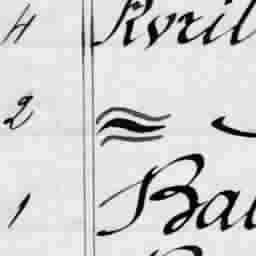 4 Kvril
2 ≈
1 Bal